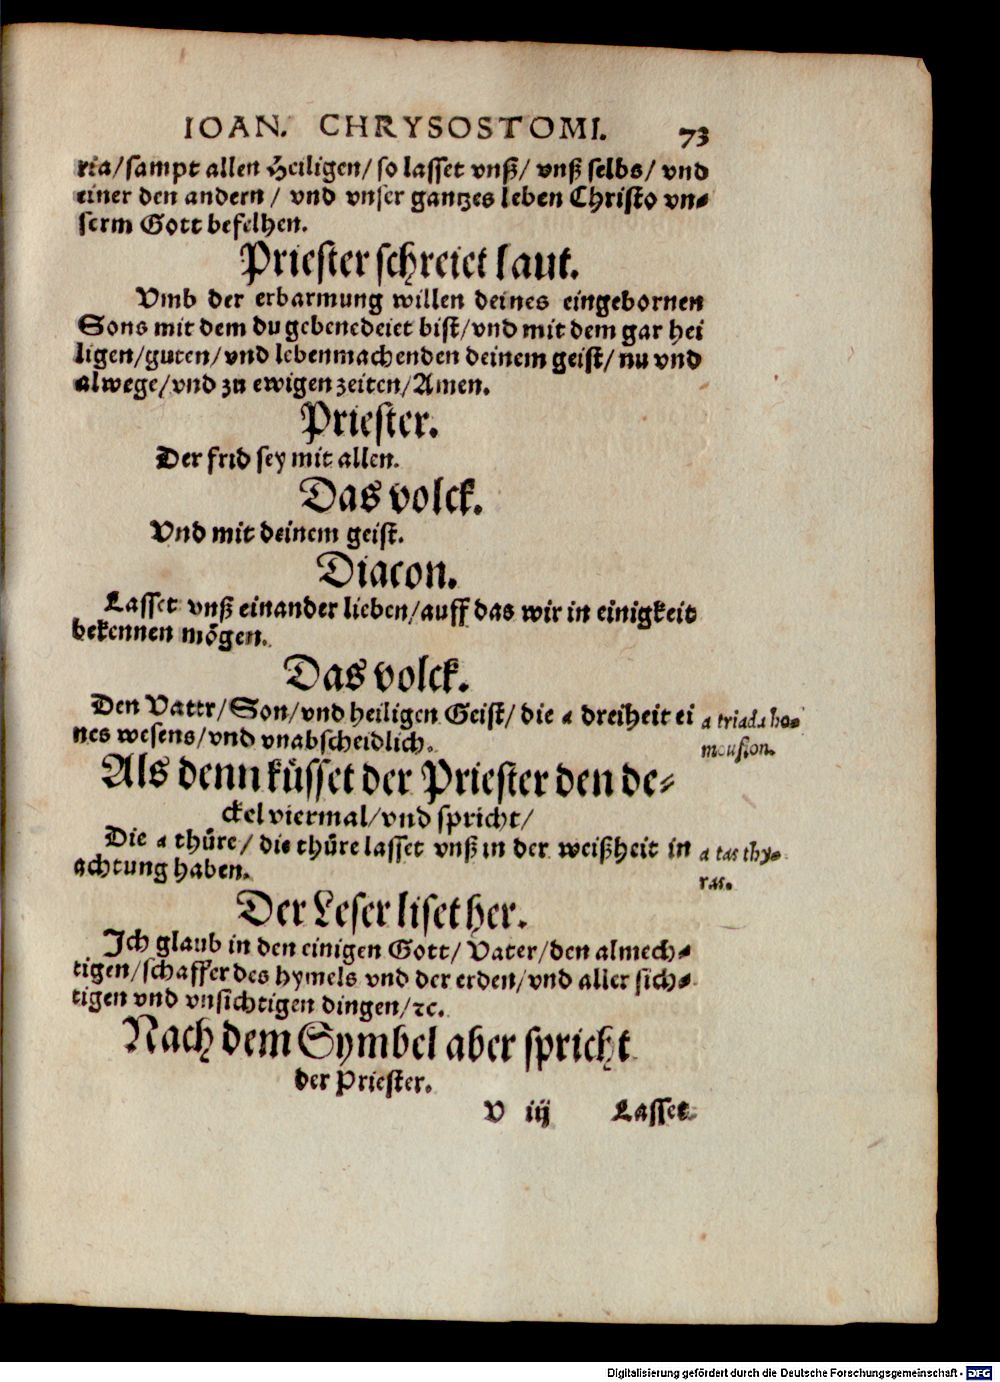 IOAN. CHRYSOSTOMI. 73
ria/sampt allen Heiligen/ so lasset vnß/ vnß selbs/ vnd
einer den andern/ vnd vnser gantzes leben Christo vn-
serm Gott befelhen.
Priester schreiet laut.
Vmb der erbarmung willen deines eingebornen
Sons mit dem du gebenedeiet bist/vnd mit dem gar hei
ligen/guten/vnd lebenmachenden deinem geist/nu vnd
alwege/vnd zu ewigen zeiten/Amen.
Priester.
Der frid sey mit allen.
Das volck.
Vnd mit deinem geist.
Diacon.
Lasset vnß einander lieben/auff das wir in einigkeit
bekennen mögen.
Das volck.
Den Vater/Son/vnd heiligen Geist/die a dreiheit ei a triada ho-
nes wesens/vnd vnabscheidlich. mousion.
Als denn küsset der Priester den de-
ckel viermal/vnd spricht/
Die a thüre/ die thüre lasset vnß in der weißheit in a tas thy-
achtung haben. ras.
Der Leser liset her.
Ich glaub in den einigen Gott/ Vater/den almech-
tigen/schaffer des hymels vnd der erden/vnd aller sich-
tigen vnd vnsichtigen dingen/ꝛc.
Nach dem Symbel aber spricht
der Priester.
V iij Lasset
Digitalisierung gefördert durch die Deutsche Forschungsgemeinschaft - DFG